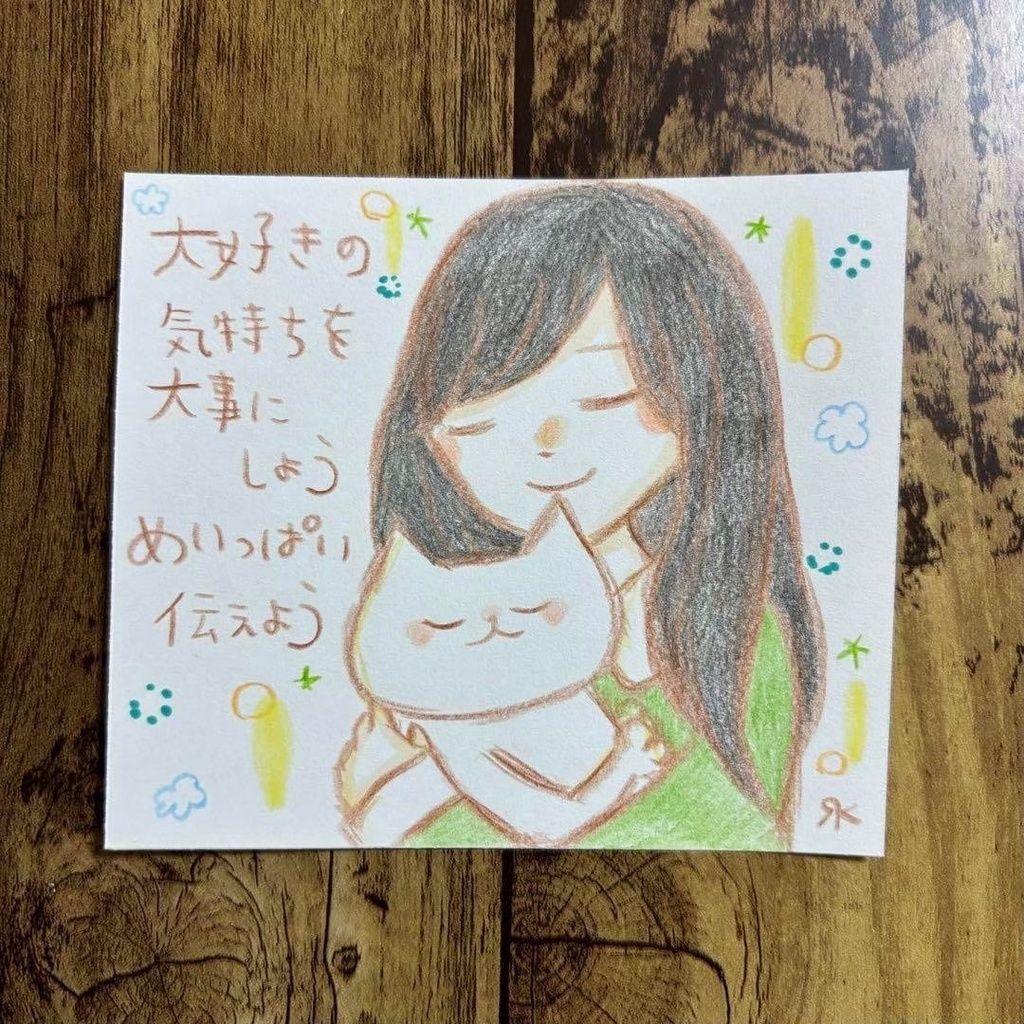 大好きの
気持ちを
大事に
しょう
めいっぱい
伝えよう